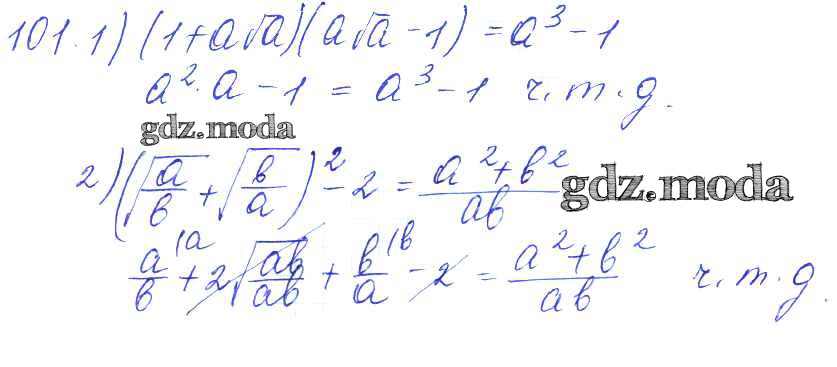 101. 1) (1+a√a)(a√a - 1) = a³ - 1
a²·a - 1 = a³ - 1 ч.т.д.
gdz.moda
2) (√(a/в) + √(в/a))² - 2 = (a² + в²)/(aв)
gdz.moda
a/в (a + 2√(aв/aв) + в/a (в - 2 = (a² + в²)/(aв) ч.т.д.